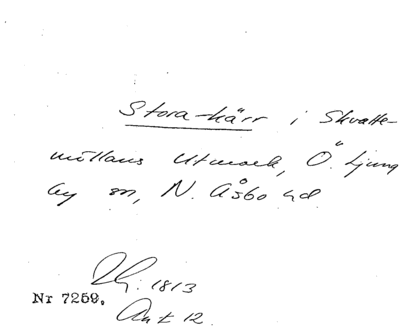 Stora-kärr i Skvatte-
möllans Utmark, Ö. Ljung
by sn, N. Åsbo hd.
1813
Nr 7259.
Akt 12.